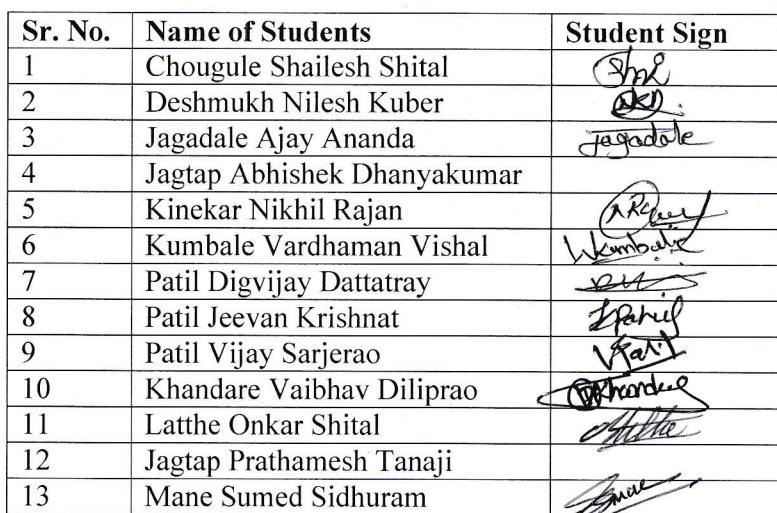 Sr. No. Name of Students Student Sign
1 Chougule Shailesh Shital
2 Deshmukh Nilesh Kuber
3 Jagadale Ajay Ananda Jagadale
4 Jagtap Abhishek Dhanyakumar
5 Kinekar Nikhil Rajan
6 Kumbale Vardhaman Vishal
7 Patil Digvijay Dattatray
8 Patil Jeevan Krishnat
9 Patil Vijay Sarjerao VPatil
10 Khandare Vaibhav Diliprao
11 Latthe Onkar Shital
12 Jagtap Prathamesh Tanaji
13 Mane Sumed Sidhuram